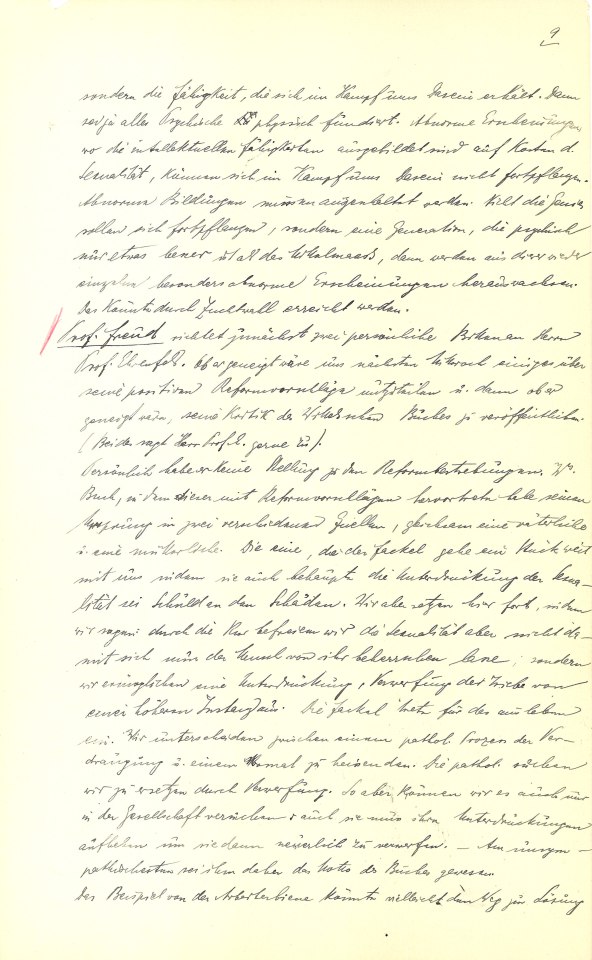 9
sondern die Fähigkeit, die sich im Kampf ums Dasein erhält. Denn
sei ja alles Psychische physisch fundiert. Abnorme Erscheinungen,
wo die intellektuellen Fähigkeiten ausgebildet sind auf Kosten d.
Sexualität, können sich im Kampf ums Dasein nicht fortpflanzen.
Abnorme Bildungen müssen ausgeschaltet werden. Nicht die Genies
sollen sich fortpflanzen, sondern eine Generation, die psychisch
nur etwas besser ist als das Mittelmaass, dann werden aus dieser wieder
einzelne besonders abnorme Erscheinungen herauswachsen.
Das könnte durch Zuchtwahl erreicht werden.
Prof. Freud richtet zunächst zwei persönliche Bitten an Herrn
Prof. Ehrenfels. Ob er geneigt wäre uns nächsten Mittwoch einiges über
seine positiven Reformvorschläge mitzuteilen u. dann ob er
geneigt wäre, seine Kritik des Buches zu veröffentlichen.
(Beides sagt Herr Prof. E. gerne zu).
Persönlich habe er keine Stellung zu den Reformbestrebungen. W's.
Buch, in dem dieser mit Reformvorschlägen hervortrete habe seinen
Ursprung in zwei verschiedenen Quellen, gleichsam eine väterliche
u. eine mütterliche. Die eine, da die Fackel gehe ein Stück weit
mit uns indem sie auch behaupte die Unterdrückung der Sexua-
lität sei Schuld an den Schäden. Wir aber setzen hier fort, indem
wir sagen: durch die Kur befreien wir die Sexualität aber nicht da-
mit sich nun der Mensch von ihr beherrschen lasse, sondern
wir ermöglichen eine Unterdrückung, Verwerfung der Triebe von
einer höheren Instanz aus. Die Fackel trete für das ausleben
ein. Wir unterscheiden zwischen einem pathol. Prozess der Ver-
drängung u. einem normal zu heissenden. Die pathol. suchen
wir zu ersetzen durch Verwerfung. So aber können wir es auch nur
in der Gesellschaft versuchen: auch sie muss ihre Unterdrückungen
aufheben um sie dann neuerlich zu verwerfen. — Am unsym-
pathischesten sei ihm daher das Motto des Buches gewesen.
Das Beispiel von der Arbeiterbiene könnte vielleicht den Weg zur Lösung